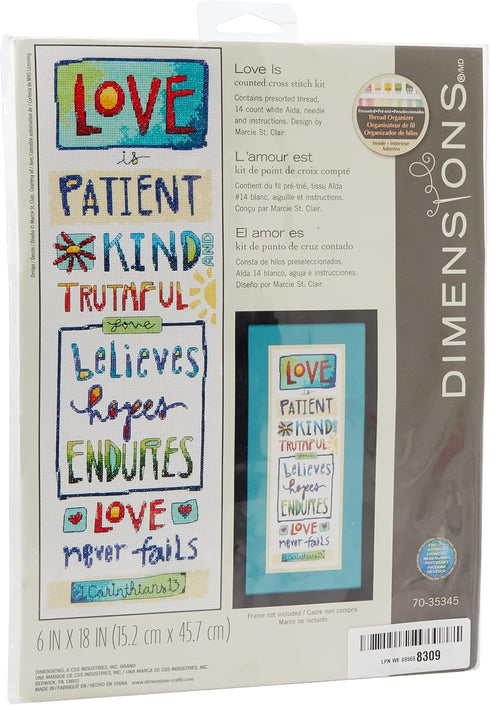 LOVE
is
PATIENT
KIND AND
TRUTHFUL
love
believes
hopes
ENDURES
LOVE
never fails
1 Corinthians 13
6 IN X 18 IN (15.2 cm x 45.7 cm)
DIMENSIONS, A CSS INDUSTRIES, INC. BRAND
BERWICK, PA 18603
MADE IN/FABRIQUÉ EN/HECHO EN CHINA - www.dimensions-crafts.com
Love Is
counted cross stitch kit
Contains presorted thread,
14 count white Aida, needle
and instructions. Design by
Marcie St. Clair.
L'amour est
kit de point de croix compté
Contient du fil pré-trié, tissu Aïda
#14 blanc, aiguille et instructions.
Conçu par Marcie St. Clair.
El amor es
kit de punto de cruz contado
Consta de hilos preseleccionados,
Aida 14 blanco, aguja e instrucciones.
Diseño por Marcie St. Clair.
Thread Organizer
Organisateur de fil
Organizador de hilos
Inside • Intérieur
Adentro
DIMENSIONS®/MD
LOVE
is
PATIENT
KIND AND
TRUTHFUL
love
believes
hopes
ENDURES
LOVE
never fails
1 Corinthians 13
Frame not included / Cadre non compris
Marco no incluido
70-35345
LPN WE 09565 8309